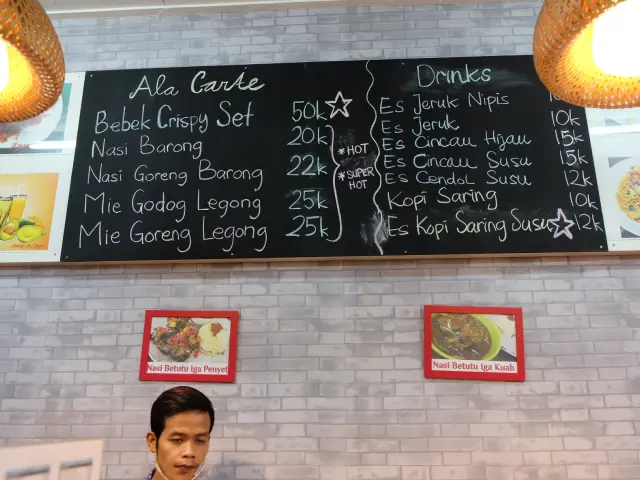 Ala Carte
Bebek Crispy Set 50k
Nasi Barong 20k
Nasi Goreng Barong 22k
Mie Godog Legong 25k
Mie Goreng Legong 25k
* HOT
* SUPER HOT
Drinks
Es Jeruk Nipis
Es Jeruk 10k
Es Cincau Hijau 15k
Es Cincau Susu 15k
Es Cendol Susu 12k
Kopi Saring 10k
Es Kopi Saring Susu 12k
Nasi Betutu Iga Penyet
Nasi Betutu Iga Kuah